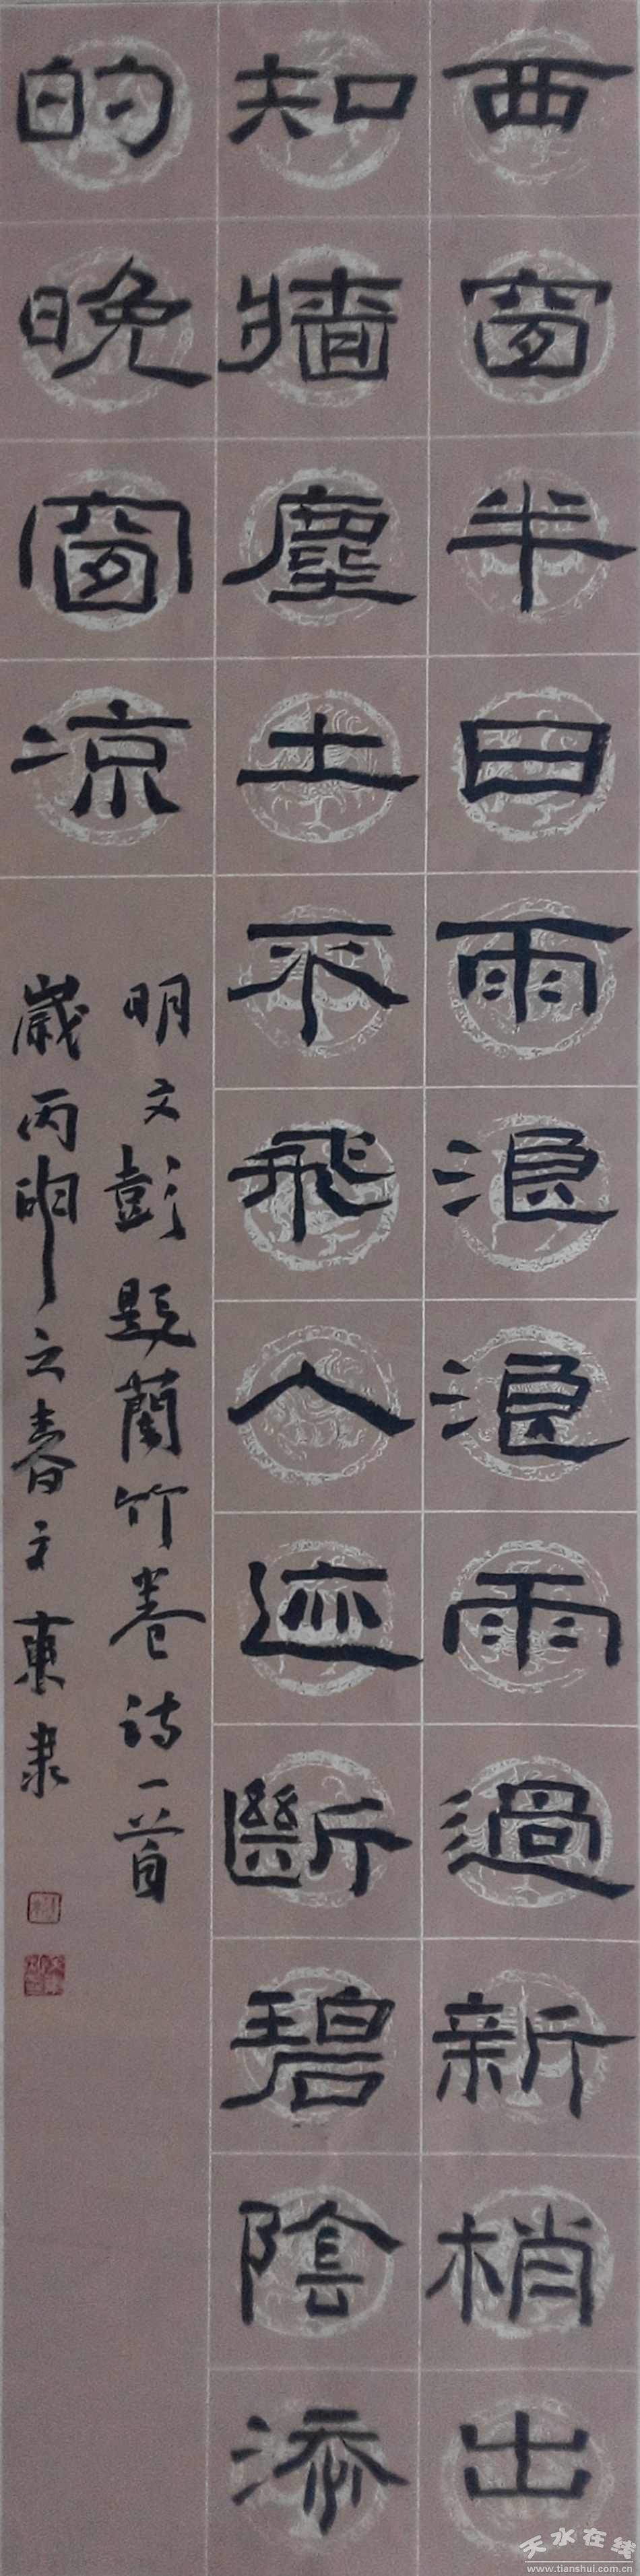 西窗半日雨浪浪雨過新梢出
知牆塵土不飛人迹斷碧陰添
的晚窗凉
明文彭題蘭竹卷詩一首
歲丙申之春文東隶
天水在线
www.tianshui.com.cn